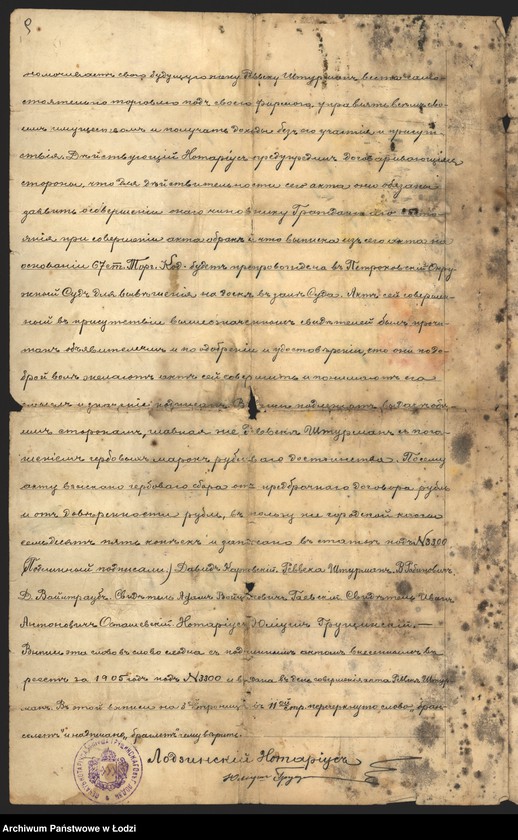 номочиваетъ свою будущую жену Ревеку Штурманъ вести само-
стоятельно торговлю подъ своею фирмою, управлять всѣмъ сво-
имъ имуществомъ и получать доходы безъ его участія и присут-
ствія. Дѣйствующій Нотаріусъ предупредилъ договаривающіяся
стороны, что для дѣйствительности сего акта они обязаны
заявить о совершеніи онаго чиновнику Гражданскаго Состо-
янія при совершеніи акта о бракѣ и что выписка изъ сего акта на
основаніи 67 ст. Торг. Код. будетъ препровождена въ Петроковскій Окру-
жный Судъ для вывѣшенія на доскѣ въ залѣ Суда. Актъ сей совершен-
ный въ присутствіи вышеозначенныхъ свидѣтелей былъ прочи-
танъ объявителямъ и по одобреніи и удостовѣреніи, что они по до-
брой волѣ желаютъ актъ сей совершить и понимаютъ его
смыслъ и значеніе подписанъ. Выписи подлежитъ выдать обѣ-
имъ сторонамъ, главная же Ревекѣ Штурманъ съ пога-
шеніемъ гербовыхъ марокъ рубловаго достоинства. По сему
акту взыскано герboваго сбора отъ предбрачнаго договора рубль
и отъ довѣренности рубль, въ пользу же городской кассы
семьдесятъ пять копѣекъ и записано въ статьѣ подъ № 3800
(Подлинный подписали) Давидъ Ревека Штурманъ.
Д. Вайнтраубъ. Свидѣтель Адамъ Войцеховичъ Гаевскій Свидѣтель Иванъ
Антоновичъ Нотаріусъ Юліушъ Грущинскій.—
Выпись эта слово въ слово сходна съ подлиннымъ актомъ внесеннымъ въ
реестръ за 1905 годъ подъ № 3800 и выдана въ день совершенія акта Ревекѣ Штур-
манъ. Въ этой выписи на строкѣ зачеркнуто слово „бра-
слетъ" и надписано „брылетъ" чему вѣрить.
Лодзинскій Нотаріусъ